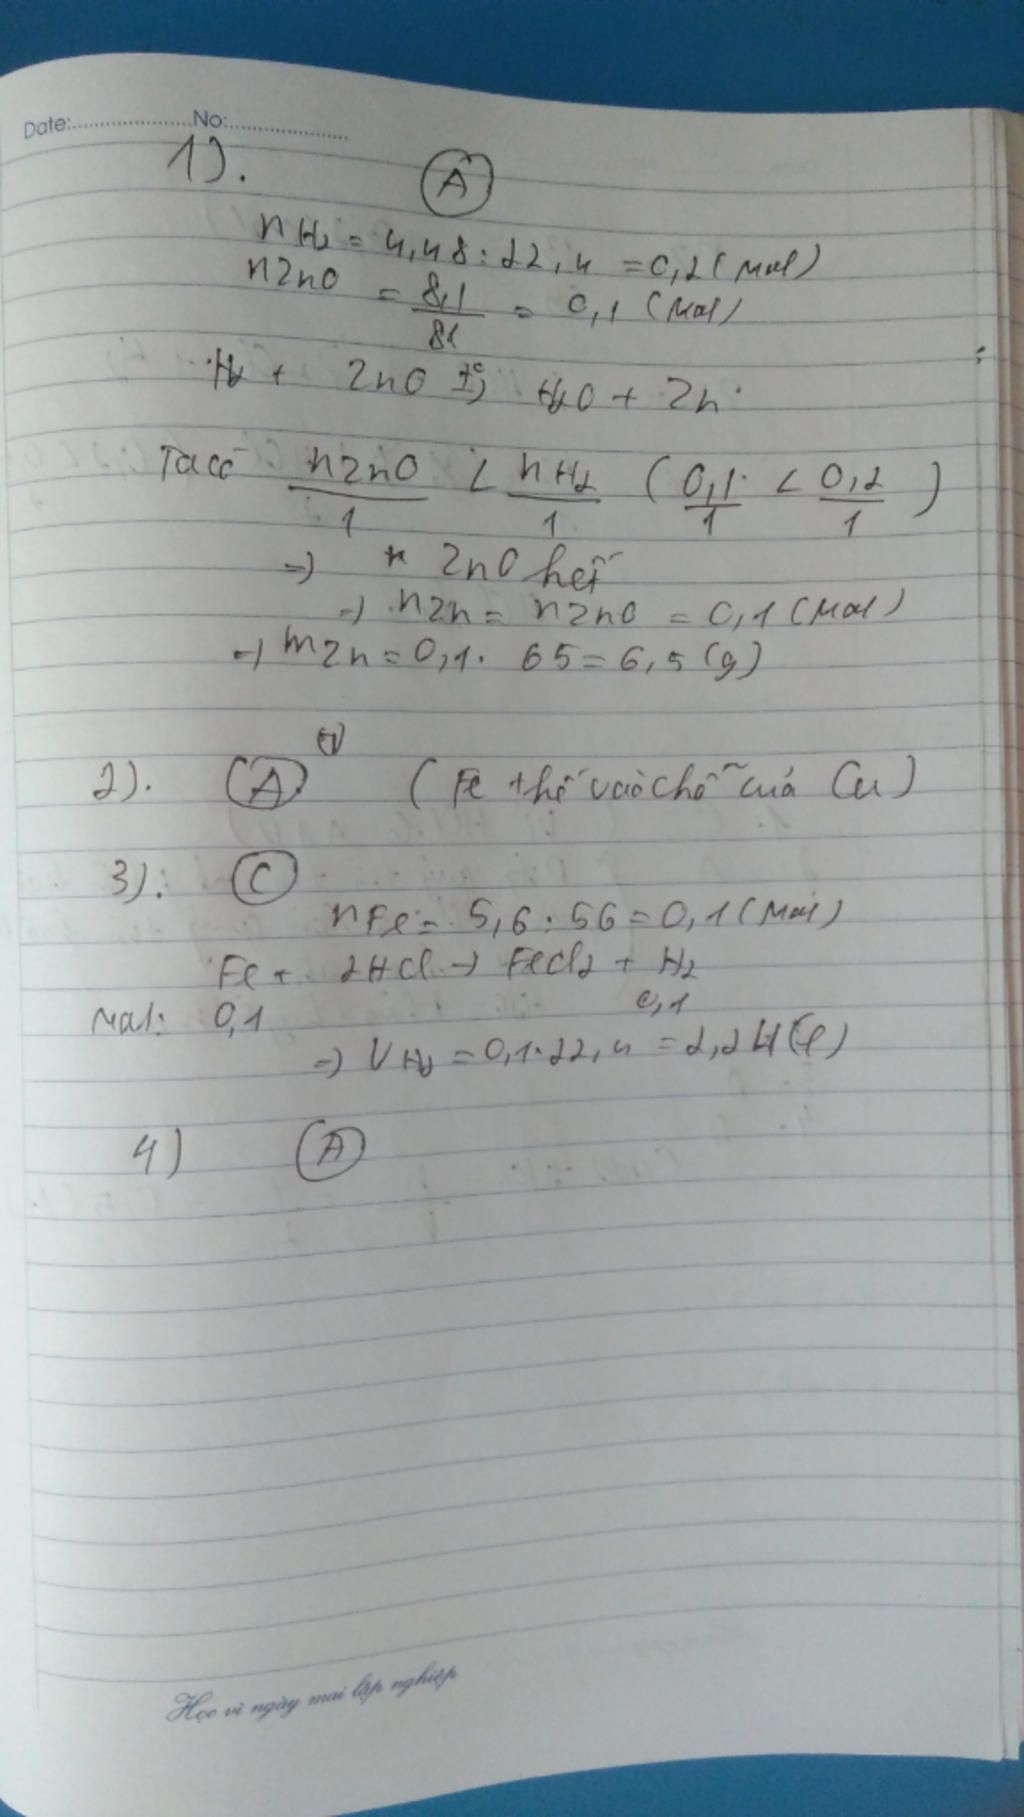 Date:...................No:...................
1). A
nH₂ = 4,48 : 22,4 = 0,2 (mol)
nZnO = 8,1/81 = 0,1 (mol)
H₂ + ZnO t°→ H₂O + Zn
Ta có nZnO/1 < nH₂/1 (0,1/1 < 0,2/1)
=> ZnO hết
=> nZn = nZnO = 0,1 (mol)
=> mZn = 0,1 . 65 = 6,5 (g)
2). A (Fe thế vào chỗ của Cu)
3). C
nFe = 5,6 : 56 = 0,1 (mol)
Fe + 2HCl -> FeCl₂ + H₂
mol: 0,1 0,1
=> VH₂ = 0,1.22,4 = 2,24 (l)
4) A
Học vì ngày mai lập nghiệp